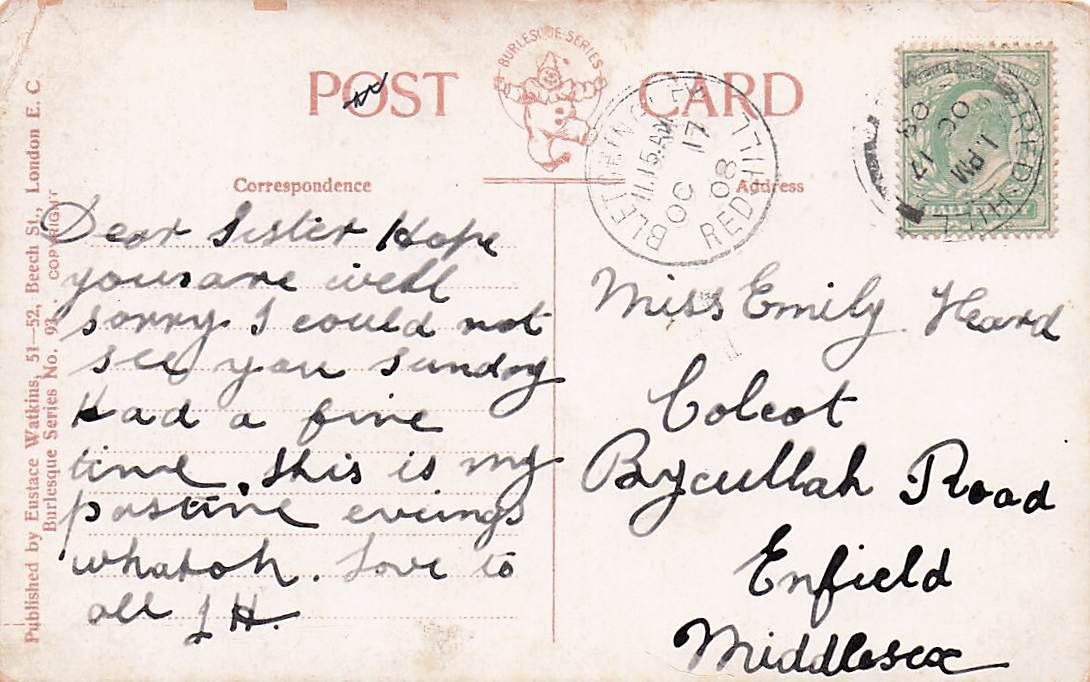 BURLESQUE SERIES
POST CARD
Correspondence
Address
Dear Sister Hope
you are well
sorry I could not
see you Sunday
Had a fine
time, this is my
pastine evings
whatoh. Love to
all J H.
Miss Emily Heard
Colcot
Bycullah Road
Enfield
Middlesex
BLETCHINGLEY
11.15 AM
OC 17
08
REDHILL
REDHILL
1. PM
OC 17
08
HALFPENNY
Published by Eustace Watkins, 51—52, Beech St., London E. C
Burlesque Series No. 93. COPYRIGHT